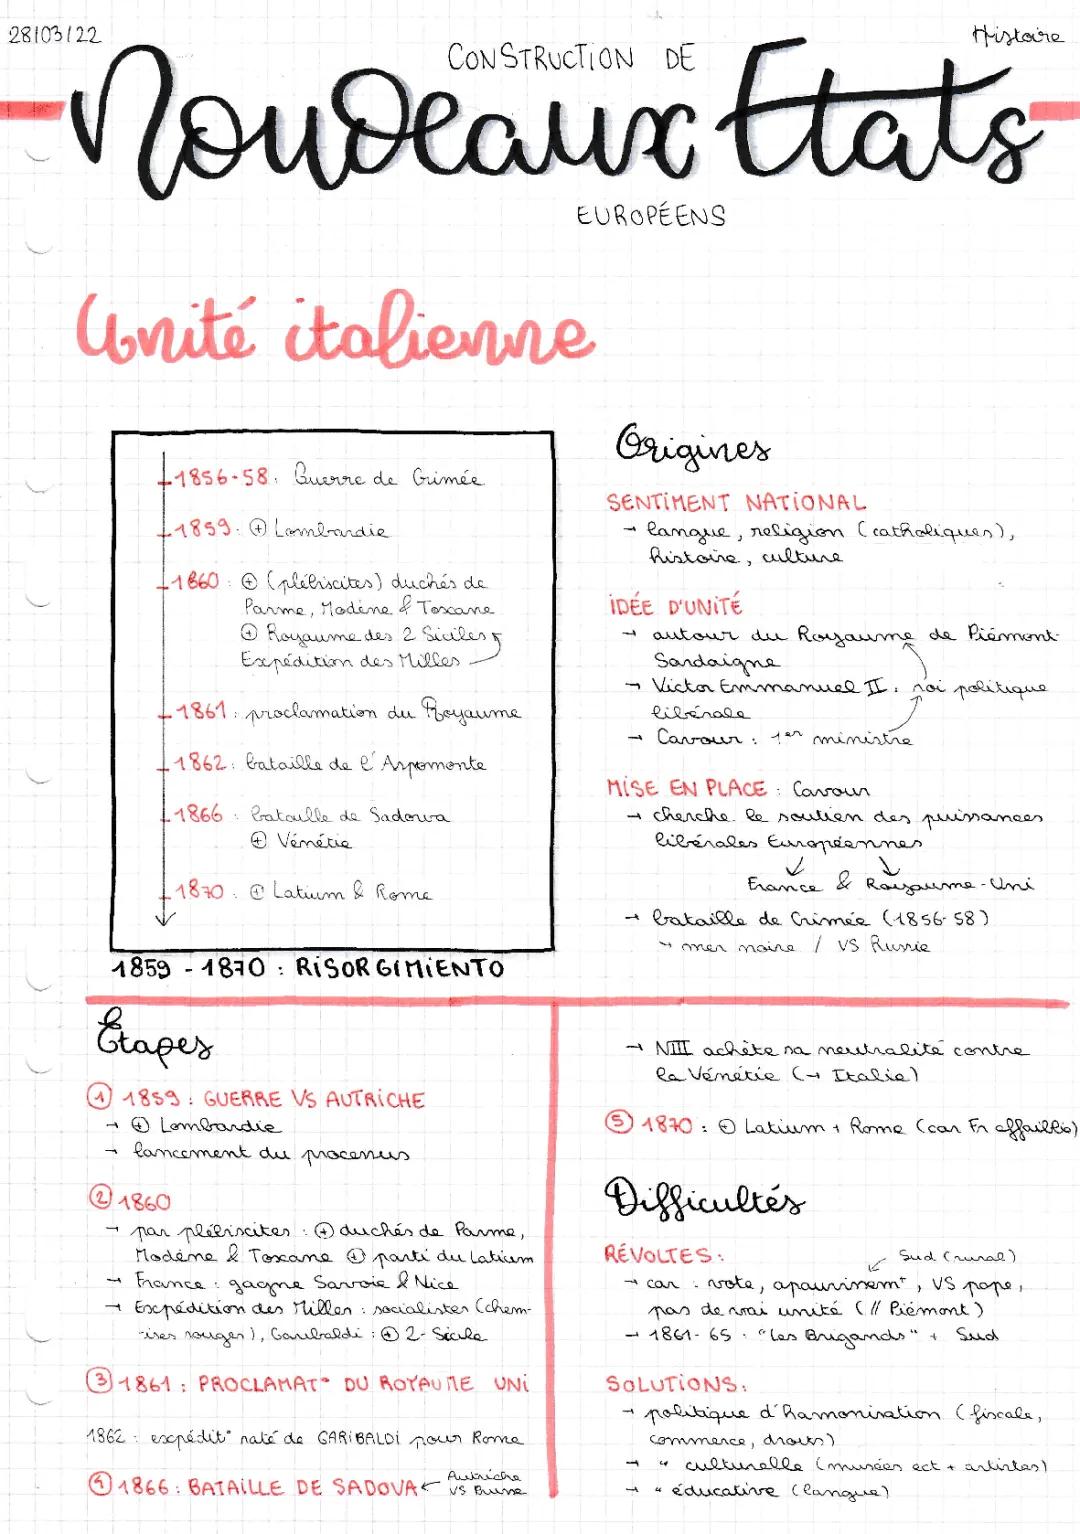 28/03/22
Histoire
CONSTRUCTION DE
Nouveaux Etats
EUROPÉENS
Unité italienne
1856-58: Guerre de Crimée
1859: ⊕ Lombardie
1860: ⊕ (plébiscites) duchés de
Parme, Modène & Toscane
⊕ Royaume des 2 Siciles
Expédition des Milles
1861: proclamation du Royaume
1862: bataille de l'Aspomonte
1866: bataille de Sadowa
⊕ Vénétie
1870: ⊕ Latium & Rome
1859 - 1870 : RISORGIMIENTO
Origines
SENTIMENT NATIONAL
→ langue, religion (catholiques),
histoire, culture
IDÉE D'UNITÉ
→ autour du Royaume de Piémont-
Sardaigne
→ Victor Emmanuel II: roi politique
libérale
→ Cavour: 1er ministre
MISE EN PLACE : Cavour
→ cherche le soutien des puissances
libérales Européennes
France & Royaume-Uni
→ bataille de Crimée (1856-58)
→ mer noire / VS Russie
Étapes
① 1859: GUERRE VS AUTRICHE
→ ⊕ Lombardie
→ lancement du processus
② 1860
→ par plébiscites : ⊕ duchés de Parme,
Modène & Toscane ⊕ parti du Latium
→ France : gagne Savoie & Nice
→ Expédition des Milles : socialistes (chem-
-ises rouges), Garibaldi : ⊕ 2-Sicile
③ 1861 : PROCLAMAT° DU ROYAUME UNI
1862 : expédit° raté de GARIBALDI pour Rome
④ 1866 : BATAILLE DE SADOVA ← Autriche
VS Prusse
→ NIII achète sa neutralité contre
la Vénétie (→ Italie)
⑤ 1870 : ⊕ Latium + Rome (car Fr affaiblie)
Difficultés
RÉVOLTES :
Sud (rural)
→ car : vote, apauvrissemt, VS pape,
pas de vrai unité (// Piémont)
→ 1861-65 : "Les Brigands" + Sud
SOLUTIONS:
→ politique d'harmonisation (fiscale,
commerce, droits)
→ " culturelle (musées ect + artistes)
→ " éducative (langue)